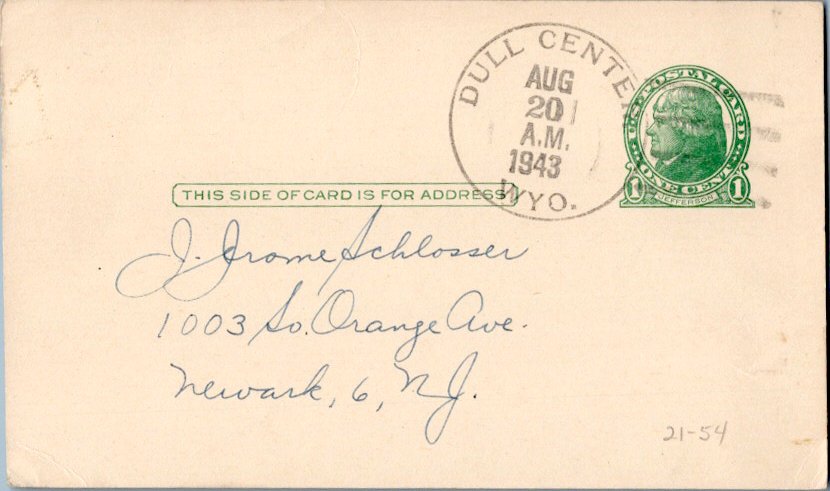 DULL CENTER
AUG
20
A.M.
1943
WYO.
U.S. POSTAL CARD
ONE CENT
1 1
JEFFERSON
THIS SIDE OF CARD IS FOR ADDRESS
J. Jrome Schlosser
1003 So. Orange Ave.
Newark, 6, N.J.
21-54